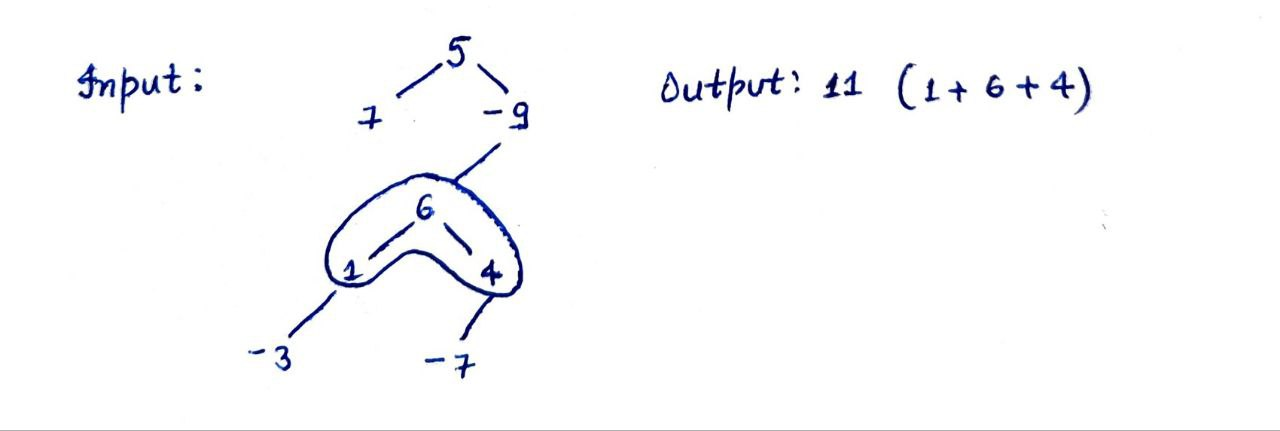 Input:
5
7 -9
6
1 4
-3 -7
Output: 11 (1 + 6 + 4)